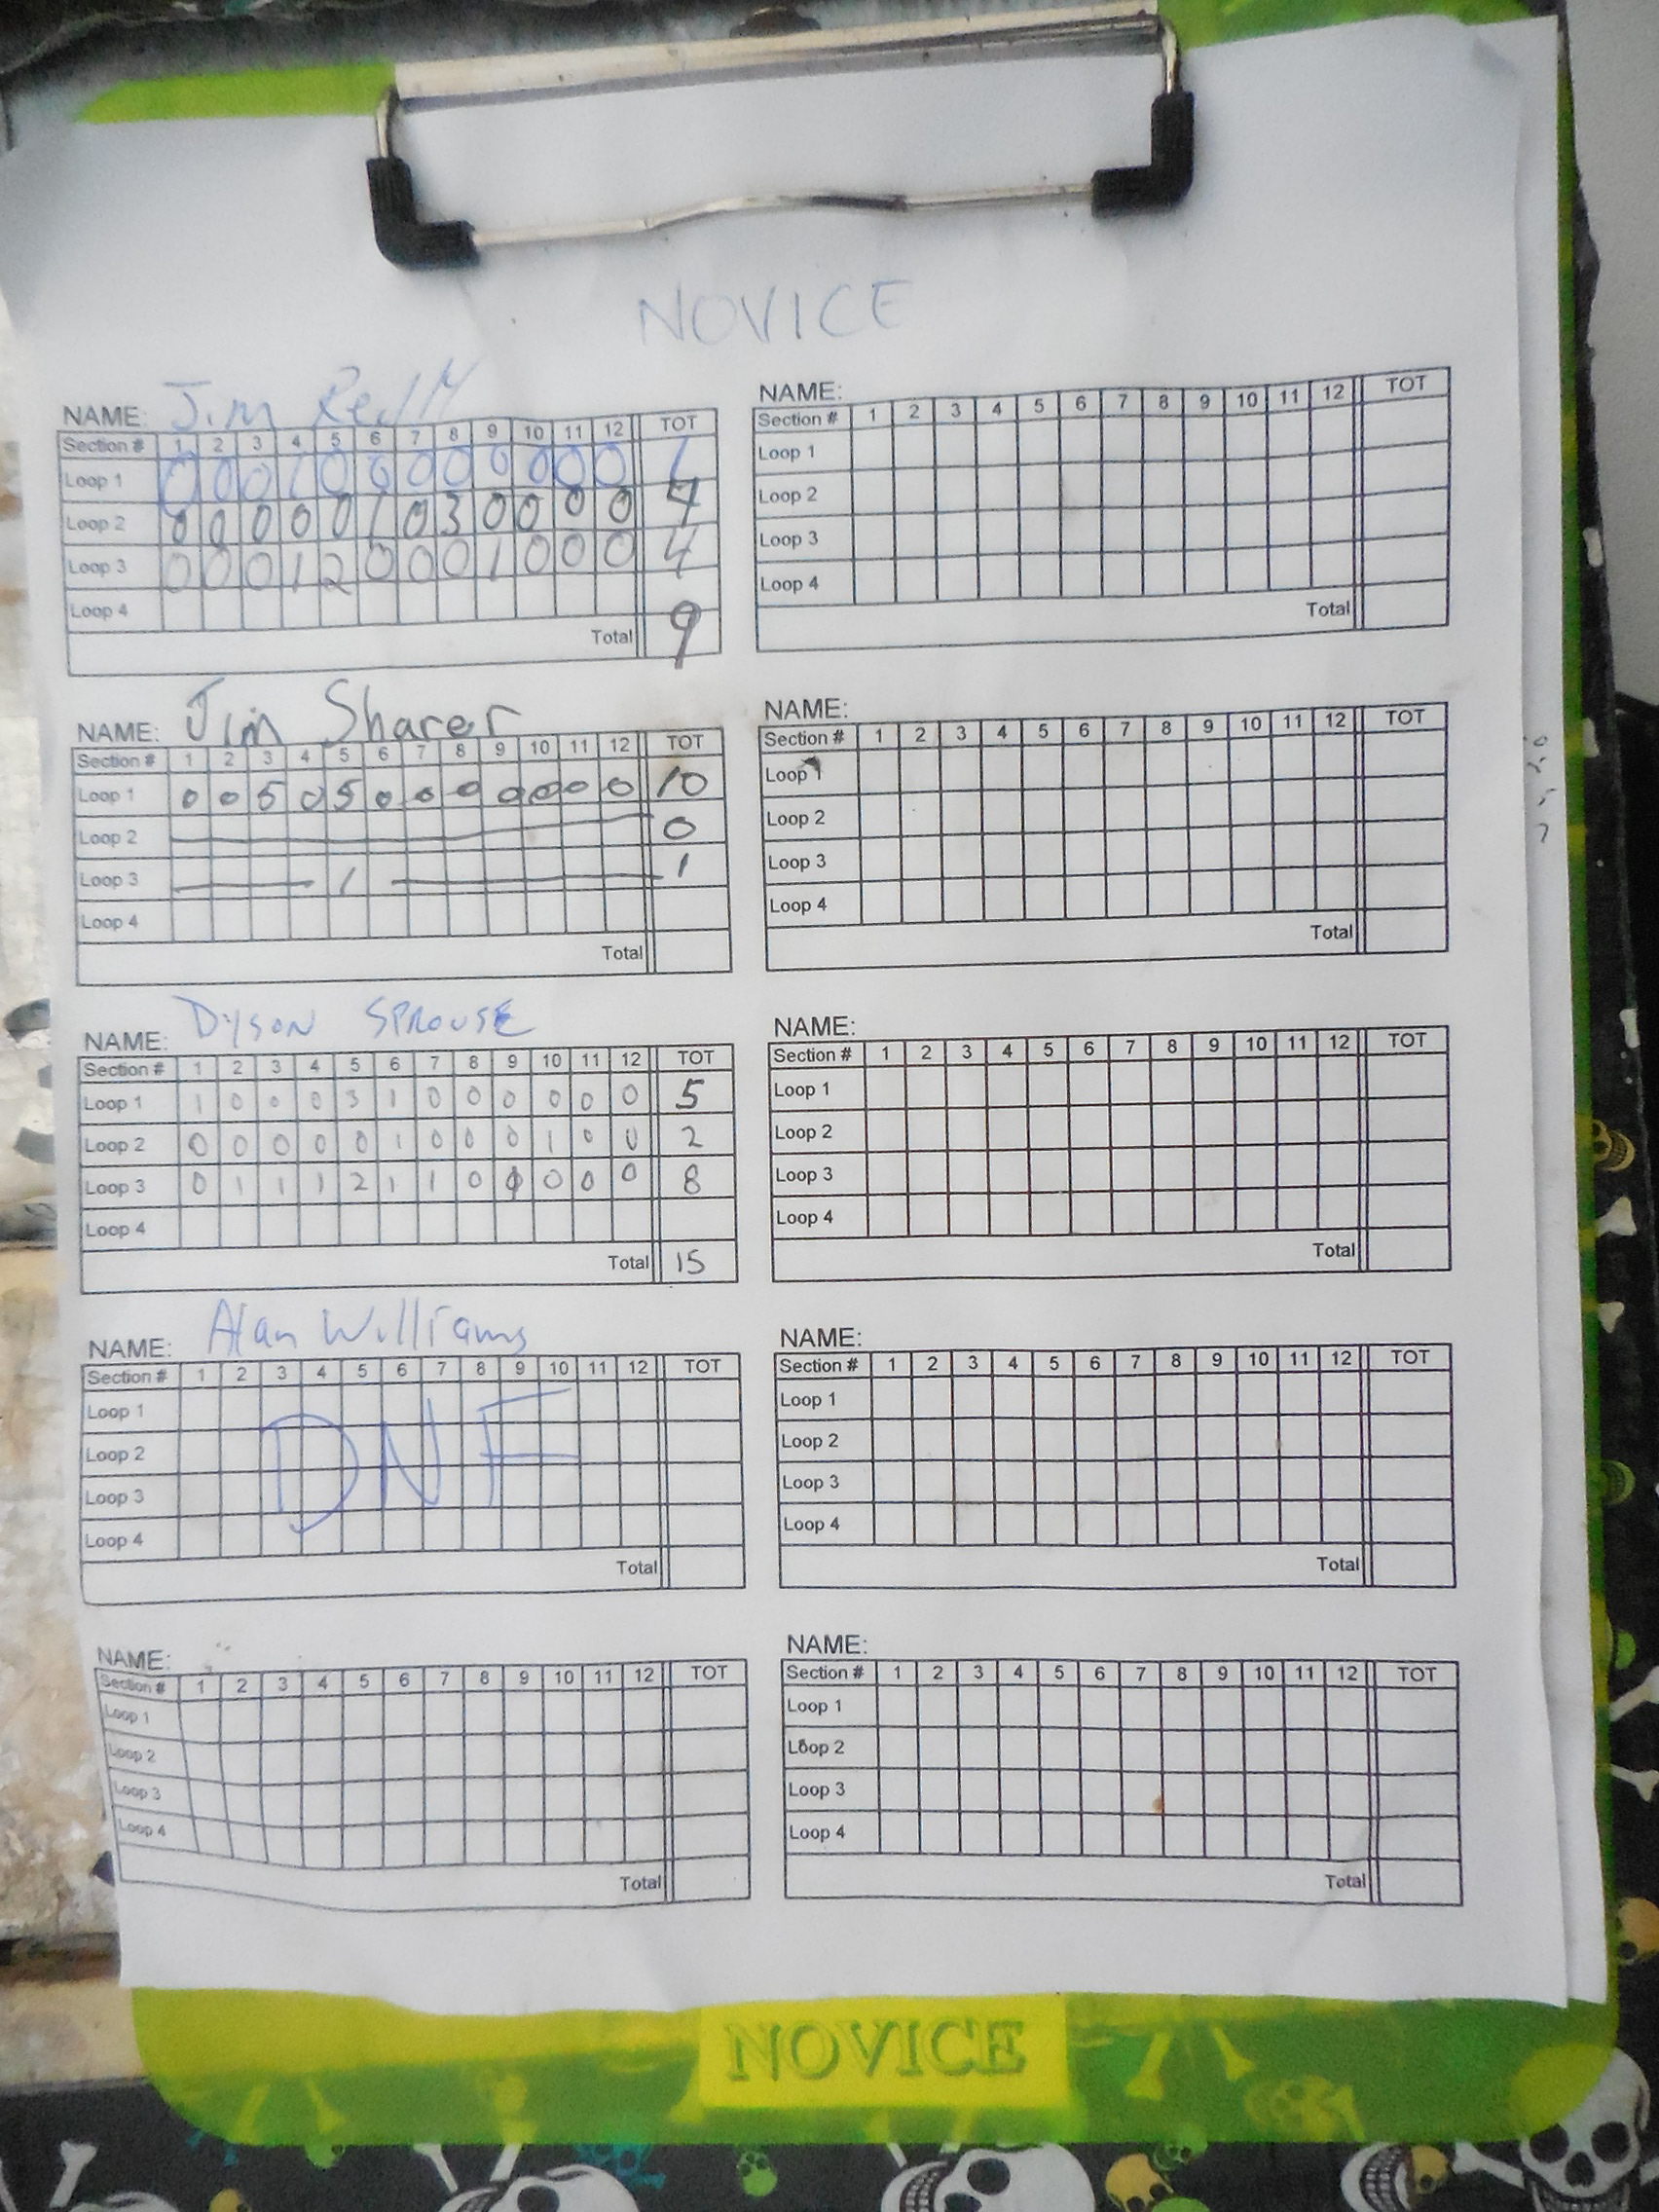 NOVICE
NAME: Jim Reilly
Section # 1 2 3 4 5 6 7 8 9 10 11 12 TOT
Loop 1 0 0 0 1 0 0 0 0 0 0 0 0 1
Loop 2 0 0 0 0 0 1 0 3 0 0 0 0 4
Loop 3 0 0 0 1 2 0 0 0 1 0 0 0 4
Loop 4
Total 9
NAME: Jim Sharer
Section # 1 2 3 4 5 6 7 8 9 10 11 12 TOT
Loop 1 0 0 5 0 5 0 0 0 0 0 0 0 10
Loop 2 0
Loop 3 1 1
Loop 4
Total
NAME: Dyson SPROUSE
Section # 1 2 3 4 5 6 7 8 9 10 11 12 TOT
Loop 1 1 0 0 0 3 1 0 0 0 0 0 0 5
Loop 2 0 0 0 0 0 1 0 0 0 1 0 0 2
Loop 3 0 1 1 1 2 1 1 0 0 0 0 0 8
Loop 4
Total 15
NAME: Alan Williams
Section # 1 2 3 4 5 6 7 8 9 10 11 12 TOT
Loop 1
Loop 2
Loop 3
Loop 4
DNF
Total
NAME:
Section # 1 2 3 4 5 6 7 8 9 10 11 12 TOT
Loop 1
Loop 2
Loop 3
Loop 4
Total
NAME:
Section # 1 2 3 4 5 6 7 8 9 10 11 12 TOT
Loop 1
Loop 2
Loop 3
Loop 4
Total
NAME:
Section # 1 2 3 4 5 6 7 8 9 10 11 12 TOT
Loop 1
Loop 2
Loop 3
Loop 4
Total
NAME:
Section # 1 2 3 4 5 6 7 8 9 10 11 12 TOT
Loop 1
Loop 2
Loop 3
Loop 4
Total
NAME:
Section # 1 2 3 4 5 6 7 8 9 10 11 12 TOT
Loop 1
Loop 2
Loop 3
Loop 4
Total
NAME:
Section # 1 2 3 4 5 6 7 8 9 10 11 12 TOT
Loop 1
Loop 2
Loop 3
Loop 4
Total
NOVICE